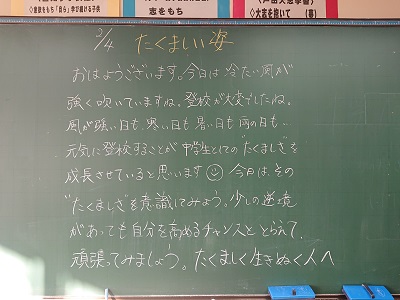 ◇意欲をもち「自ら」学が励る子供
志をもち
大志を抱いて
2/4 たくましい姿
おはようございます。今日は冷たい風が
強く吹いていますね。登校が大変でしたね。
風が強い日も、寒い日も暑い日も雨の日も…
元気に登校することが中学生としての"たくましさ"を
成長させていると思います☺今日は、その
"たくましさ"を意識してみよう。少しの逆境
があっても自分を高めるチャンスととらえて、
頑張ってみましょう。たくましく生きぬく人へ